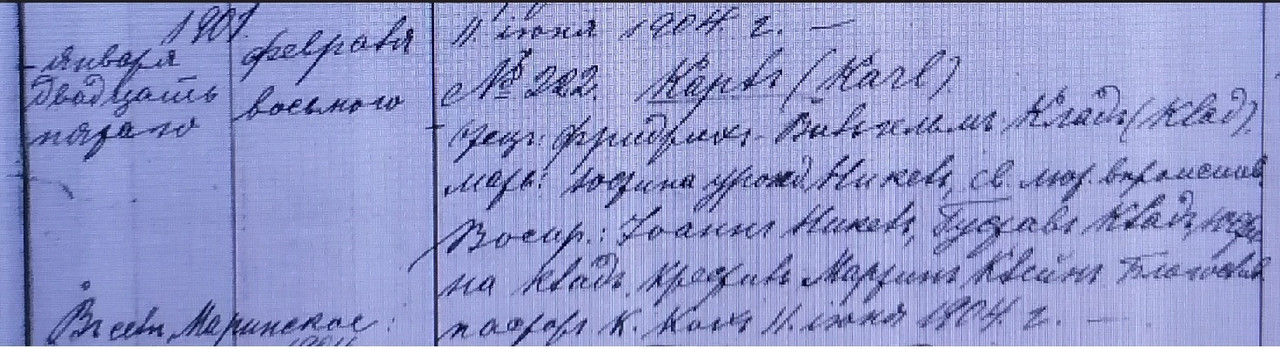 1901.
января
двадцать
пятаго
февраля
восьмого
11. iюня 1904. г. —
№ 222. Карлъ (Karl)
отецъ: Фридрихъ-Вильгельмъ Квадъ (Kvad).
мать: Юстина урожд. Никель, ев. лют. вѣроисповѣд.
Воспр.: Іоаннъ Никель, Густавъ Квадъ, Юсти-
на Квадъ. крестилъ Мартинъ Клейнъ Благослов.
пасторъ К. Кохъ 11. iюня 1904. г. —
Въ селѣ Маринское: